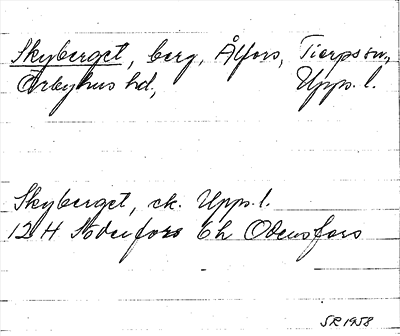 Skyberget, berg, Ålfors, Tierps sn,
Örbyhus hd, Upps. l.
Skyberget, ek. Upps. l.
12 H Söderfors 6h Odensfors
SR 1958